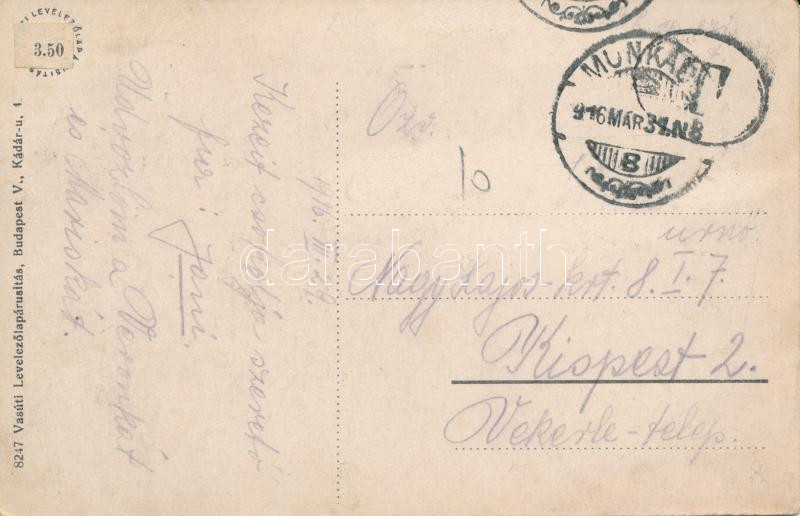 3.50
8247 Vasúti Levelezőlapárusitás, Budapest V., Kádár-u, 1.
1916 III. 29.
Kezeit csókolja szerető
fia: Jani.
Üdvözlöm a Veronkát
és Mariskát.
MUNKÁCS
916 MÁR 31. N8
8
T
Özv.
10
urnő
Nagy Lajos-krt. 8. I. 7.
Kispest 2.
Wekerle-telep.
darabanth